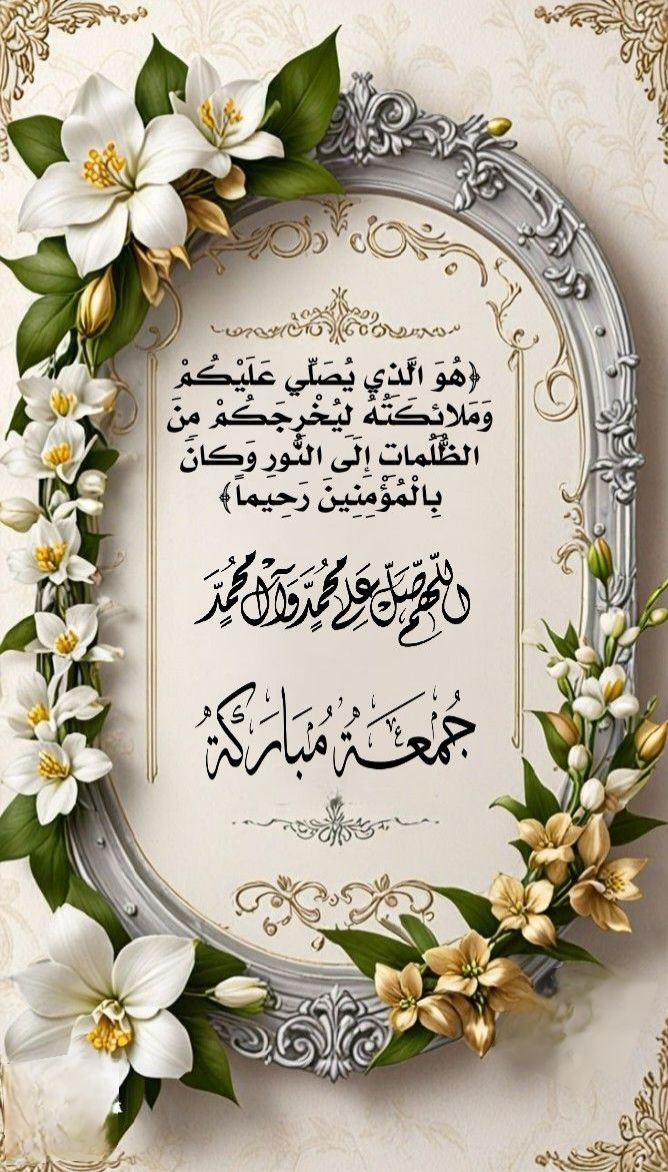 ﴿هُوَ الَّذِي يُصَلِّي عَلَيْكُمْ
وَمَلائِكَتُهُ لِيُخْرِجَكُمْ مِنَ
الظُّلُمَاتِ إِلَى النُّورِ وَكَانَ
بِالْمُؤْمِنِينَ رَحِيماً﴾
اللّهُمَّ صَلِّ عَلَى مُحَمَّدٍ وَآلِ مُحَمَّدٍ
جُمعَةُ مُبَارَكَةُ